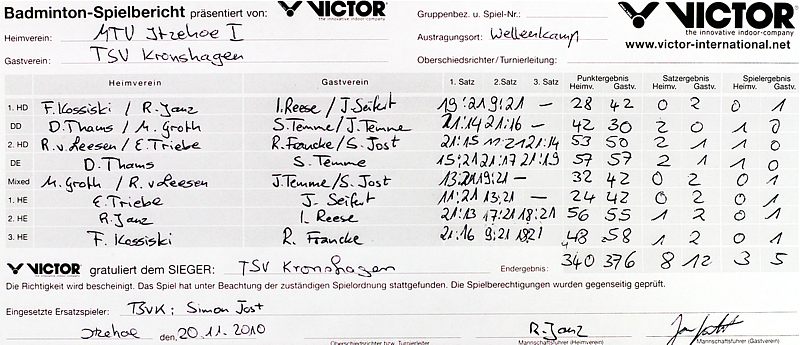 Badminton-Spielbericht präsentiert von: VICTOR the innovative indoor-company Gruppenbez. u. Spiel-Nr.: VICTOR the innovative indoor-company
Heimverein: MTV Itzehoe I Austragungsort: Wellenkamp www.victor-international.net
Gastverein: TSV Kronshagen Oberschiedsrichter/Turnierleitung:
Heimverein Gastverein 1. Satz 2.Satz 3. Satz Punktergebnis Heimv. Gastv. Satzergebnis Heimv. Gastv. Spielergebnis Heimv. Gastv.
1. HD F. Kossiski / R. Janz I. Reese / J. Seifert 19:21 9:21 — 28 42 0 2 0 1
DD D. Thams / M. Groth S. Temme / J. Temme 21:14 21:16 — 42 30 2 0 1 0
2. HD R. v. Leesen / E. Triebe R. Francke / S. Jost 21:15 11:21 21:14 53 50 2 1 1 0
DE D. Thams S. Temme 15:21 21:17 21:19 57 57 2 1 1 0
Mixed M. Groth / R. v. Leesen J. Temme / S. Jost 13:21 19:21 — 32 42 0 2 0 1
1. HE E. Triebe J. Seifert 11:21 13:21 — 24 42 0 2 0 1
2. HE R. Janz I. Reese 21:13 17:21 18:21 56 55 1 2 0 1
3. HE F. Kossiski R. Francke 21:16 9:21 18:21 48 58 1 2 0 1
VICTOR gratuliert dem SIEGER: TSV Kronshagen Endergebnis: 340 376 8 12 3 5
Die Richtigkeit wird bescheinigt. Das Spiel hat unter Beachtung der zuständigen Spielordnung stattgefunden. Die Spielberechtigungen wurden gegenseitig geprüft.
Eingesetzte Ersatzspieler: TSVK: Simon Jost
Itzehoe den, 20.11.2010 R. Janz
Oberschiedsrichter bzw. Turnierleiter Mannschaftsführer (Heimverein) Mannschaftsführer (Gastverein)